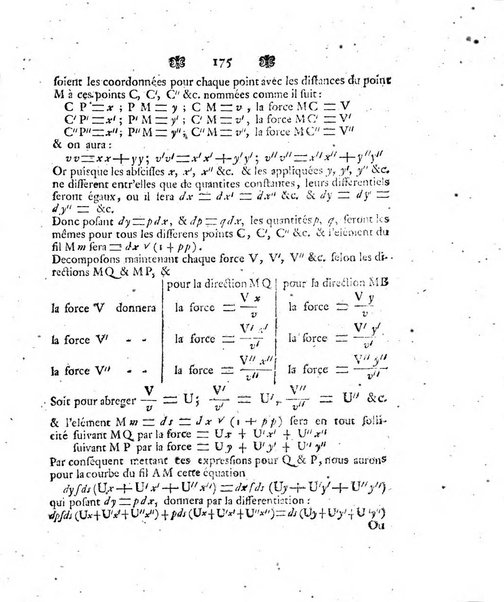 175
soient les coordonnées pour chaque point avec les distances du point
M à ces points C, C', C'' &c. nommées comme il suit:
C P = x ; P M = y ; C M = v, la force MC = V
C'P' = x' ; P'M = y' ; C'M = v', la force MC' = V'
C''P'' = x''; P''M = y''; C''M = v'', la force MC'' = V''
& on aura :
vv = xx + yy; v'v' = x'x' + y'y'; v''v'' = x''x'' + y''y''
Or puisque les abscisses x, x', x'' &c. & les appliquées y, y', y'' &c.
ne différent entr'elles que de quantites constantes, leurs differentiels
seront égaux, ou il sera dx = dx' = dx'' = &c. & dy = dy' =
dy'' = &c.
Donc posant dy = pdx, & dp = qdx, les quantités p, q, seront les
mêmes pour tous les differens points C, C', C'' &c. & l'élément du
fil Mm sera = dx √(1 + pp).
Decomposons maintenant chaque force V, V', V'' &c. selon les di-
rections MQ & MP, &
pour la direction MQ | pour la direction MB
la force V donnera | la force = V x / v | la force = V y / v
la force V' - - | la force = V' x' / v' | la force = V' y' / v'
la force V'' - - | la force = V'' x'' / v'' | la force = V'' y'' / v''
Soit pour abreger V / v = U; V' / v' = U', V'' / v'' = U'' &c.
& l'elément M m = ds = dx √(1 + pp) sera en tout solli-
cité suivant MQ par la force = Ux + U'x' + U''x''
suivant M P par la force = Uy + U'y' + U''y''
Par conséquent mettant ces expressions pour Q & P, nous aurons
pour la courbe du fil AM cette équation
dy∫ds (Ux + U'x' + U''x'') = dx∫ds (Uy + U'y' + U''y'')
qui posant dy = pdx, donnera par la differentiation :
dp∫ds(Ux+U'x'+U''x'') + pds (Ux+U'x'+U''x'') = ds (Uy+U'y'+U''y'')
Ou